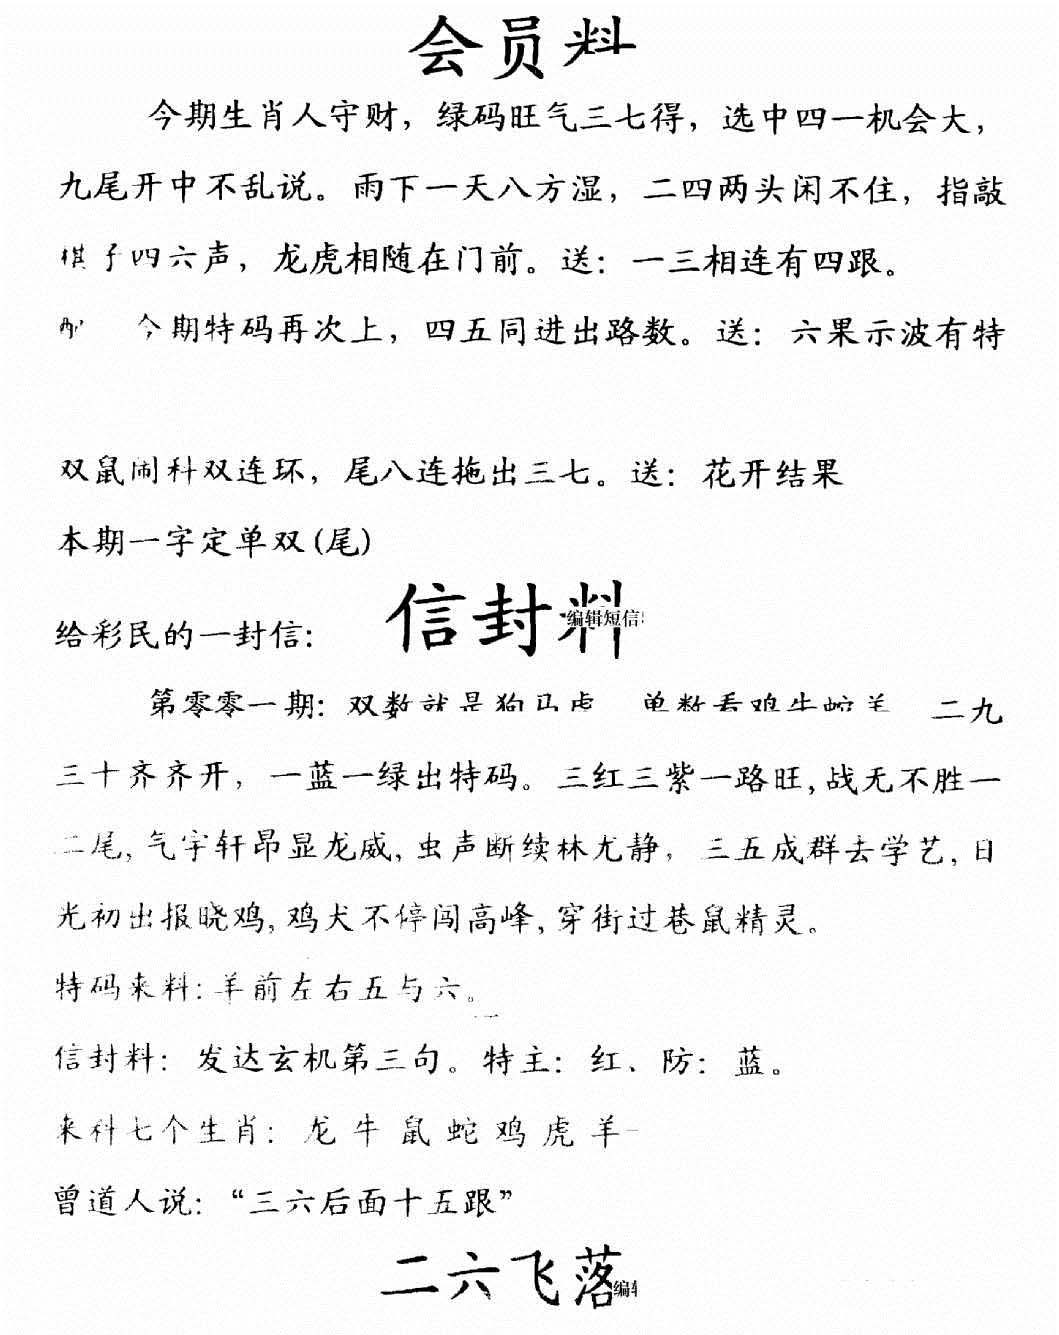 会员料
今期生肖人守财，绿码旺气三七得，选中四一机会大，
九尾开中不乱说。雨下一天八方湿，二四两头闲不住，指敲
棋子四六声，龙虎相随在门前。送：一三相连有四跟。
今期特码再次上，四五同进出路数。送：六果示波有特
双鼠闹科双连环，尾八连拖出三七。送：花开结果
本期一字定单双(尾)
信封料
编辑短信
给彩民的一封信：
第零零一期：双数就是狗马虎 单数看鸡牛蛇羊 二九
三十齐齐开，一蓝一绿出特码。三红三紫一路旺,战无不胜一
二尾,气宇轩昂显龙威,虫声断续林尤静，三五成群去学艺,日
光初出报晓鸡,鸡犬不停闯高峰,穿街过巷鼠精灵。
特码来料:羊前左右五与六。
信封料：发达玄机第三句。特主：红、防：蓝。
来料七个生肖：龙 牛 鼠 蛇 鸡 虎 羊
曾道人说：“三六后面十五跟”
二六飞落
编辑